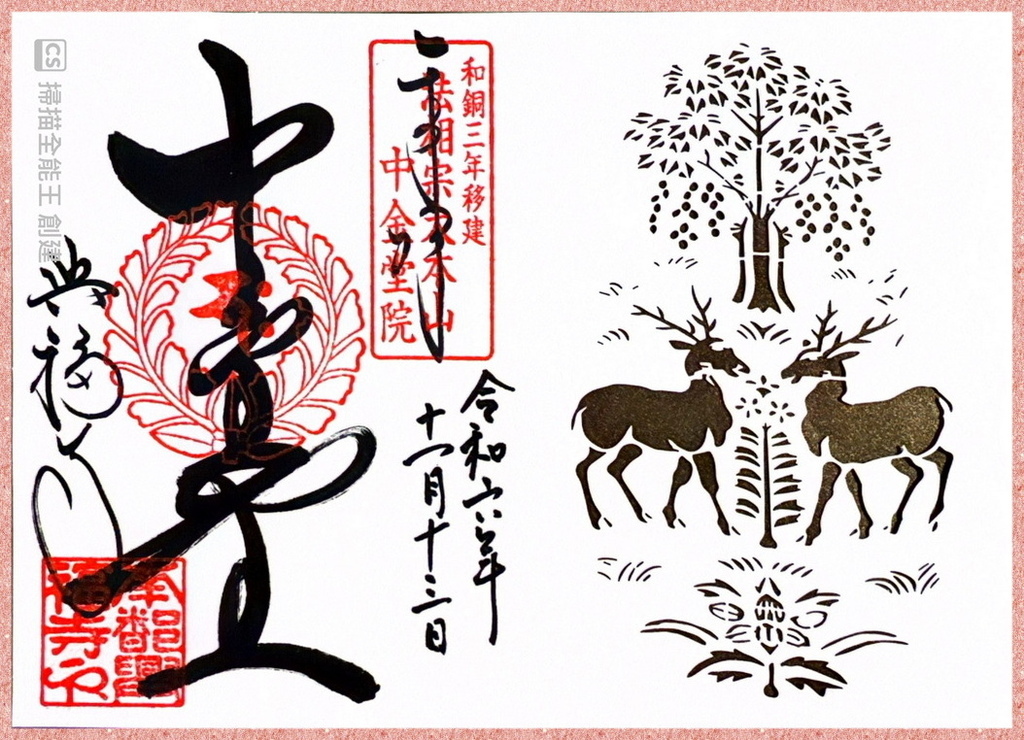 和銅三年移建
法相宗大本山
中金堂院
奉拝
令和六年
十一月十三日
中金堂
興福寺
南都興福寺印
CS 掃描全能王 創建